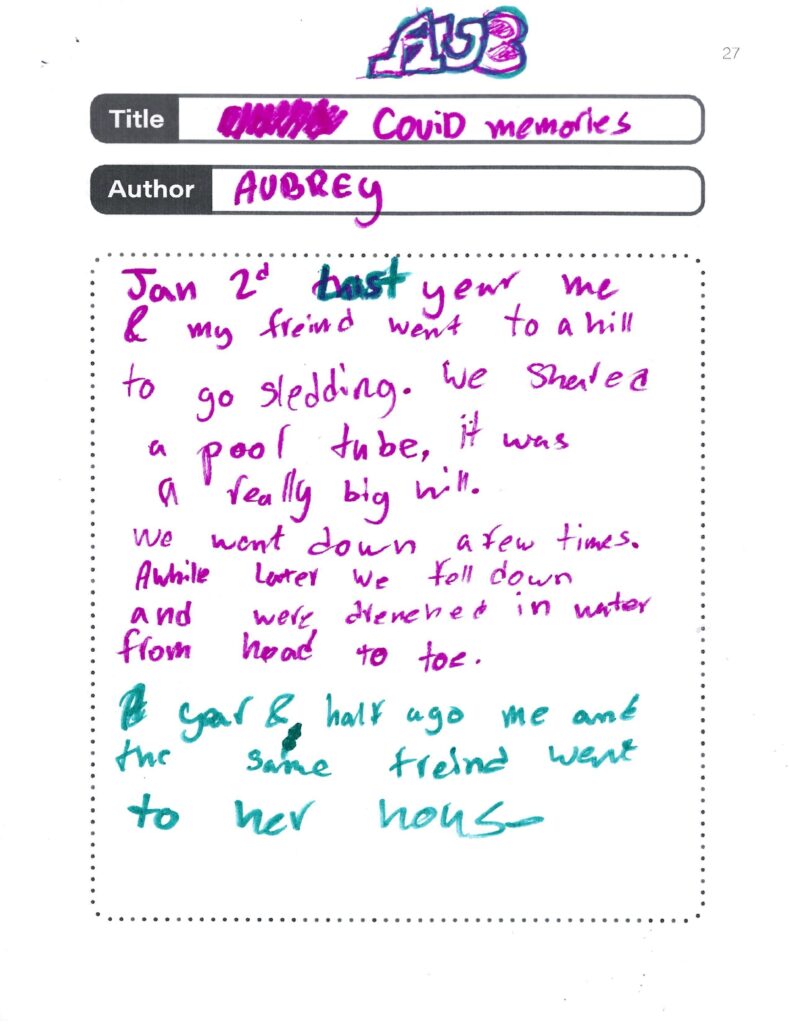 AUB
27
Title COViD memories
Author AUBREY
Jan 2d Last year me
& my freind went to a hill
to go sledding. We shared
a pool tube, it was
a really big hill.
We went down a few times.
Awhile Later we fell down
and were drenched in water
from head to toe.
A year & half ago me and
the same freind went
to her hous